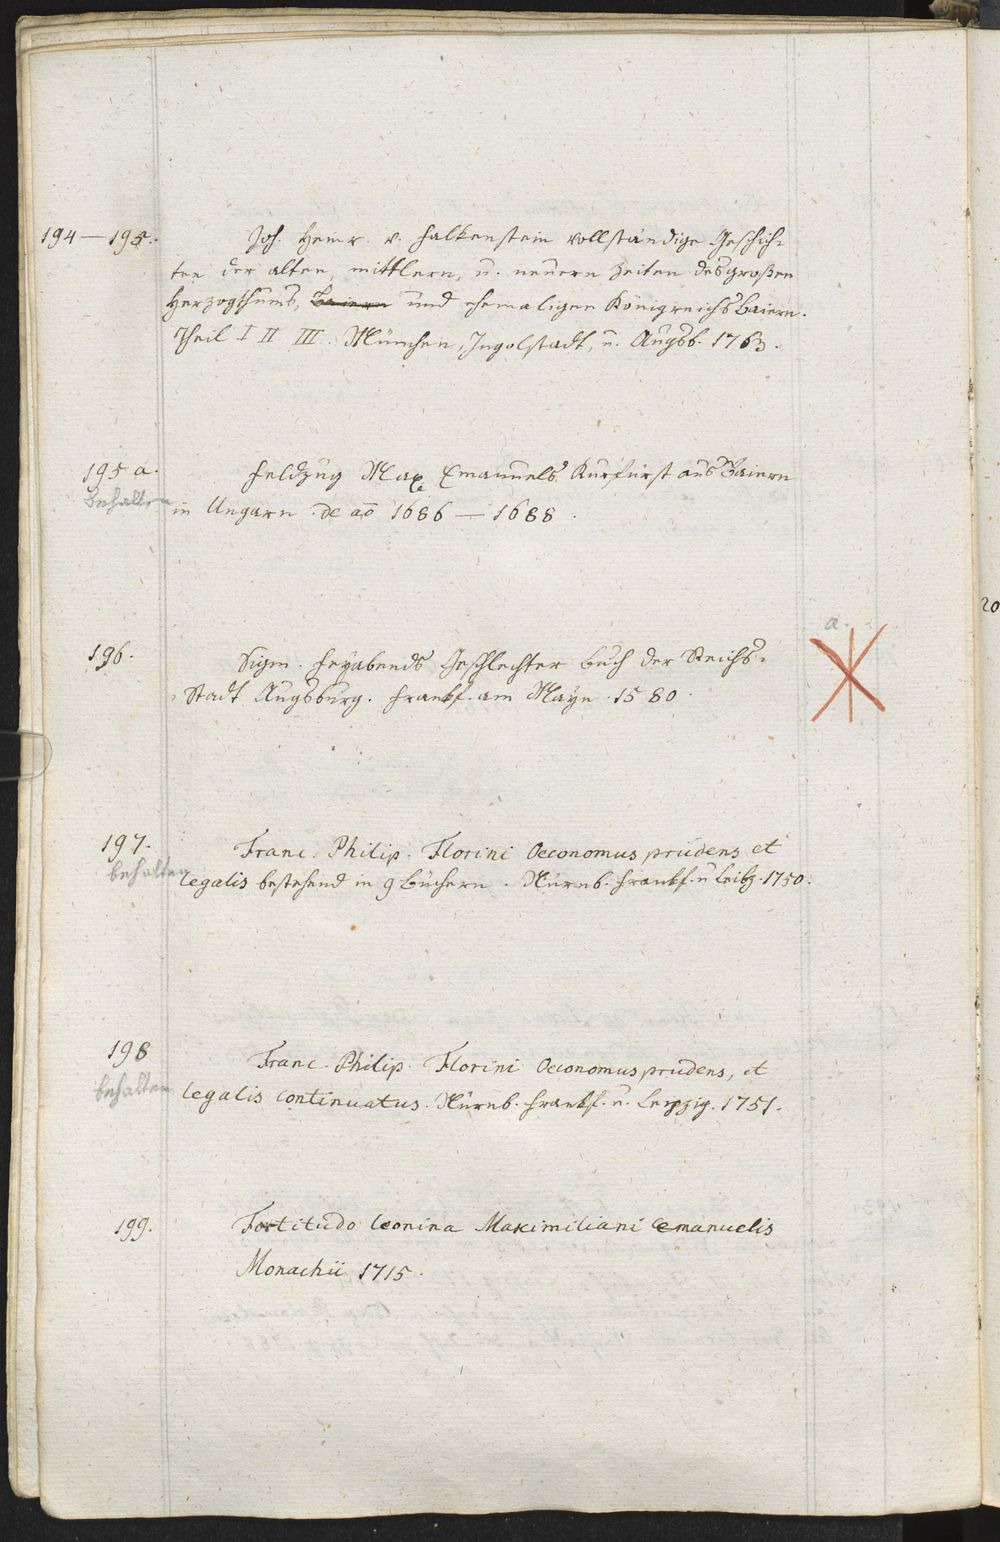 194 — 195. Joh. Heinr. v. Falkenstein vollständige Geschich-
ten der alten, mittlern, u. neuern Zeiten des großen
Herzogthums, Baiern und ehemaligen Königreichs Baiern.
Theil I II III. München, Ingolstadt, u. Augsb. 1763.
195 a. Feldzug Max Emanuels Kurfürst aus Baiern
behalten in Ungarn de aō 1686 — 1688.
a.
196. Sigm. Feyabends Geschlechter buch der Reichs-
Stadt Augsburg. Frankf. am Mayn. 1580.
197. Franc. Philip. Florini Oeconomus prudens et
behalten legalis bestehend in 9 Büchern. Nürnb. Frankf. u Leibz. 1750.
198 Franc. Philip. Florini Oeconomus prudens, et
behalten legalis continuatus. Nürnb. Frankf. u. Leipzig. 1751.
199. Fortitudo leonina Maximiliani emanuelis
Monachii 1715.
20